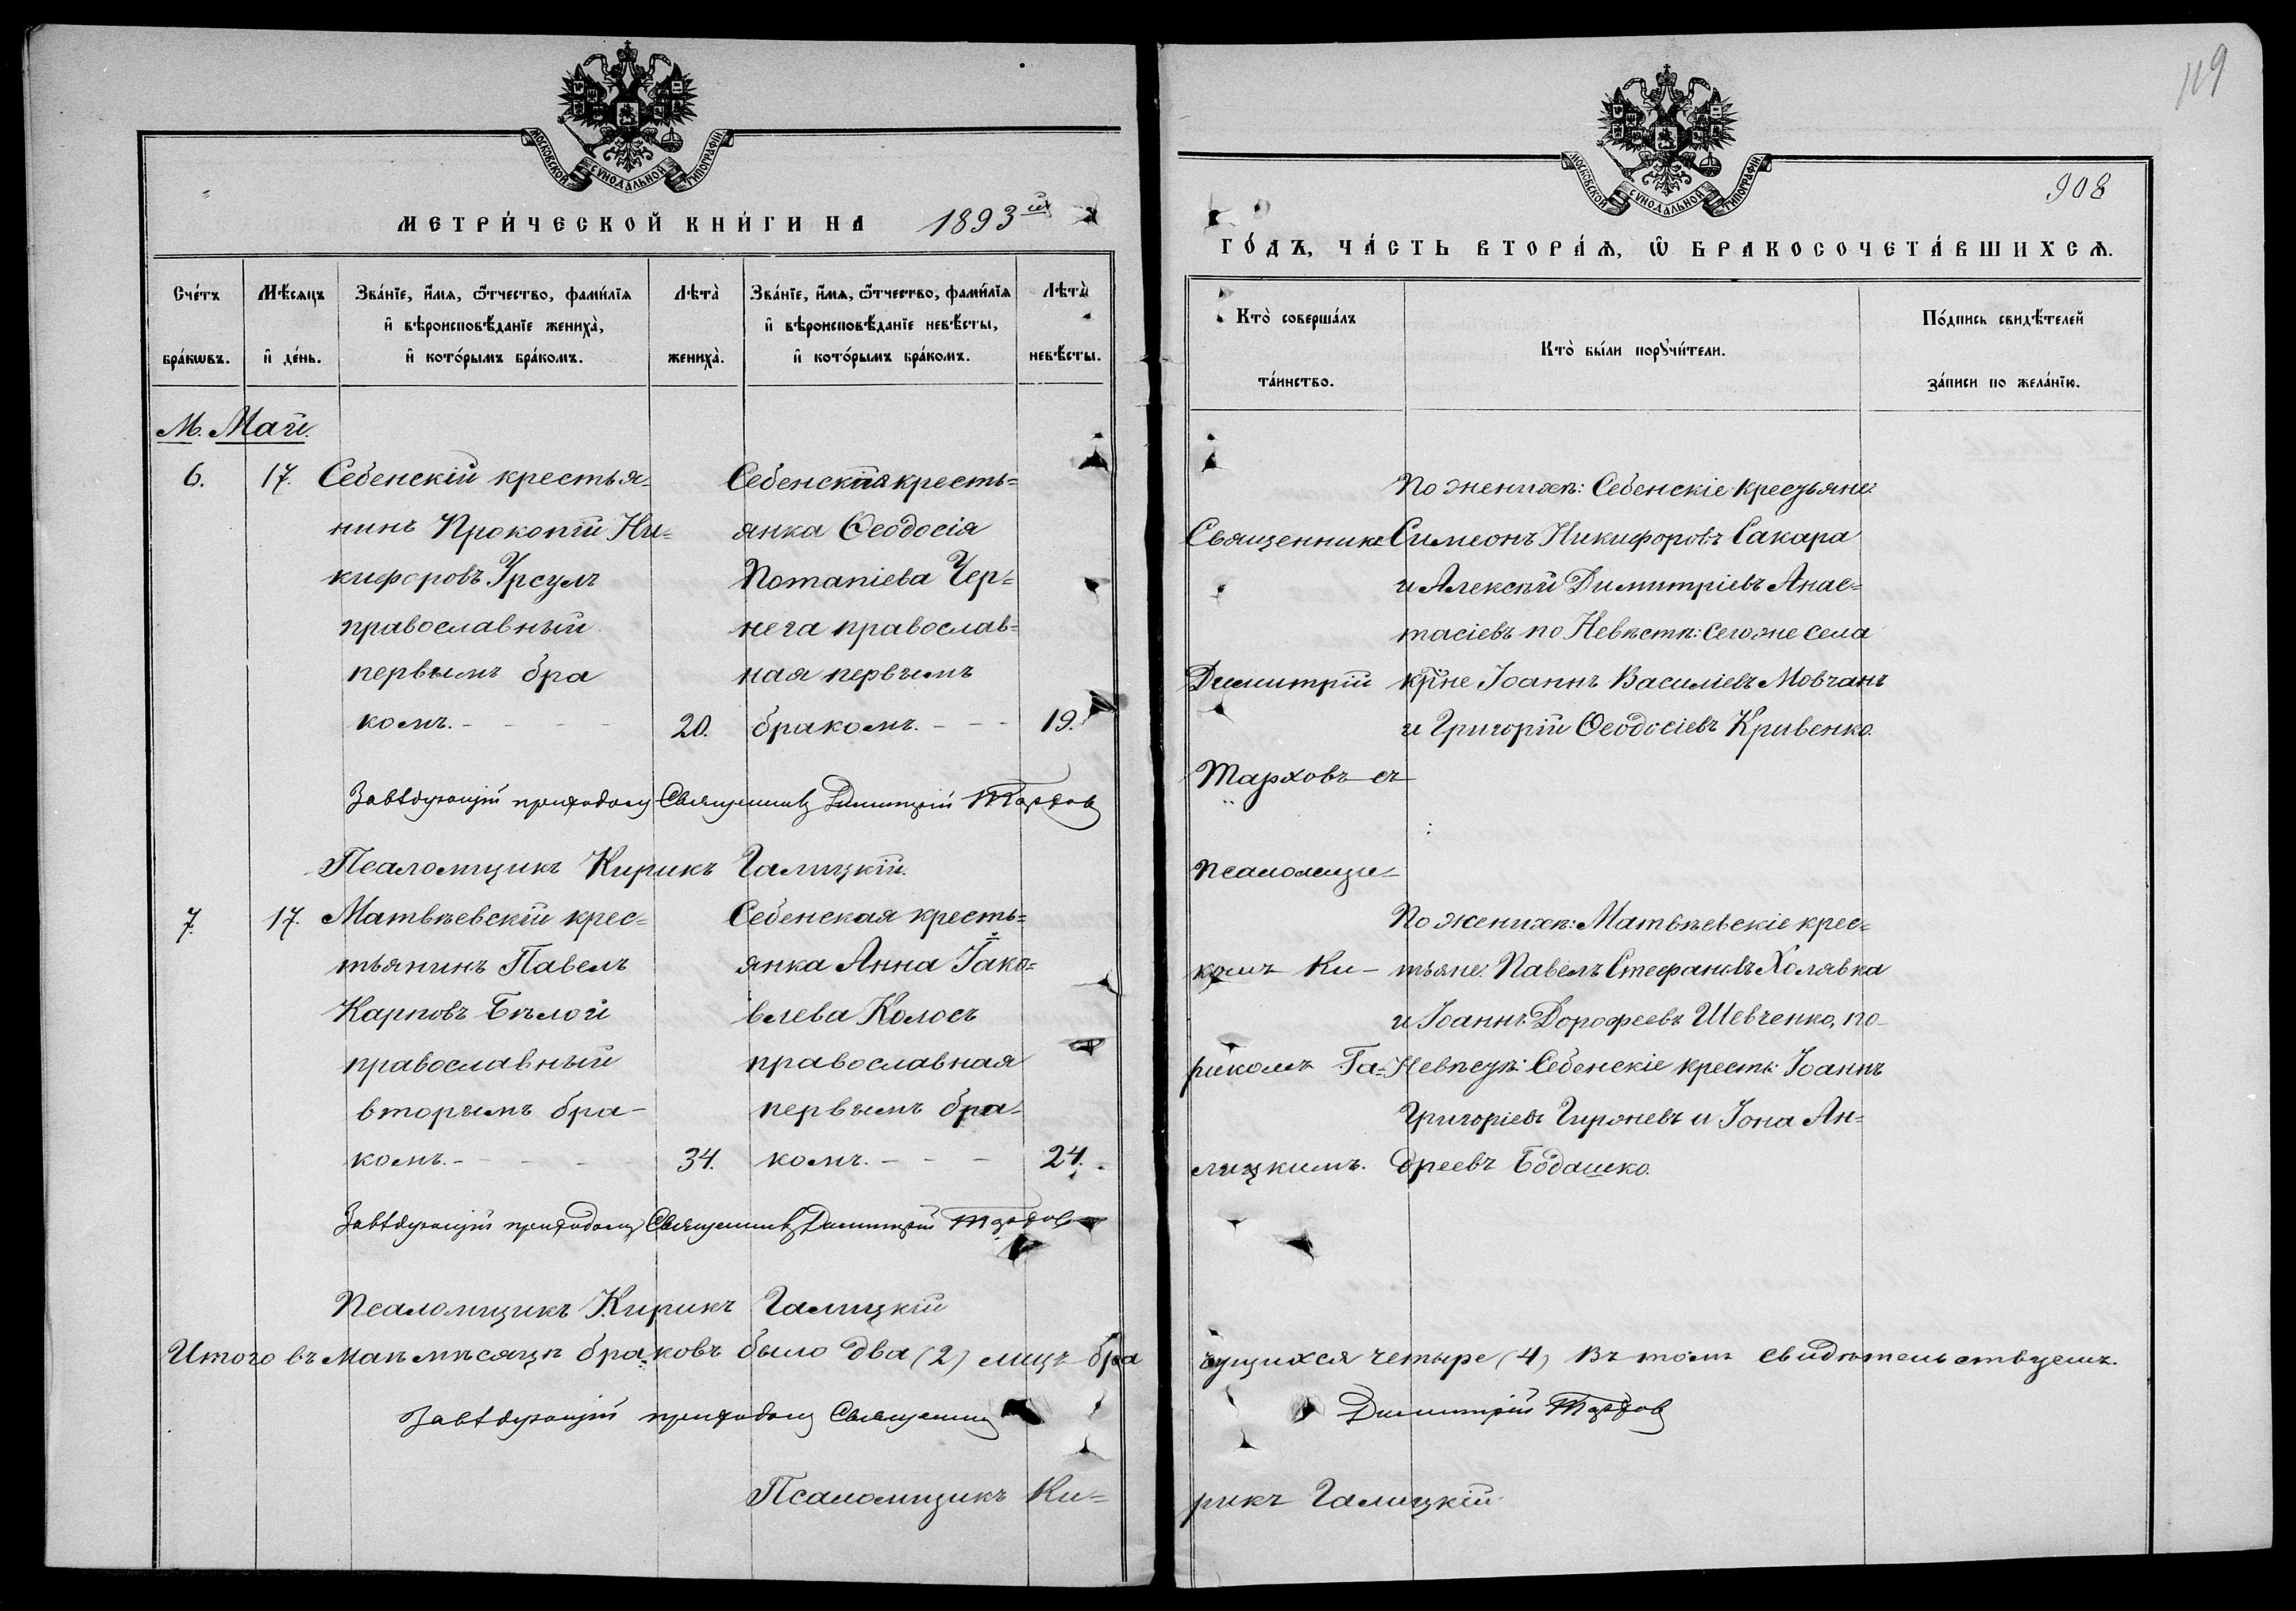 119
908
МОСКОВСКОЙ СѴНОДАЛЬНОЙ ТИПОГРАФІИ
МЕТРИ́ЧЕСКОЙ КНИ́ГИ НА 1893 ій
Сче́тъ бра́кѡвъ.
Мѣ́сяцъ и҆ де́нь.
Зва́нїе, и҆́мѧ, ѻ҆́тчество, фами́лїѧ
и҆ вѣроисповѣ́данїе жениха̀,
и҆ кото́рымъ бра́комъ.
Лѣта̀ жениха̀.
Зва́нїе, и҆́мѧ, ѻ҆́тчество, фами́лїѧ
и҆ вѣроисповѣ́данїе невѣ́сты,
и҆ кото́рымъ бра́комъ.
Лѣта̀ невѣ́сты.
М. Май.
6.
17.
Себенскій крестья-
нинъ Прокопій Ни-
кифоровъ Урсулъ
православный
первымъ бра
комъ.
20.
Себенская кресть-
янка Ѳеодосія
Потапіева Чер-
нега православ-
ная первымъ
бракомъ.
19.
Завѣдующій приходомъ Священникъ Димитрій Тарховъ
Псаломщикъ Кирикъ Галицкій.
7.
17.
Матвѣевскій крес-
тьянинъ Павелъ
Карповъ Бѣлой
православный
вторымъ бра-
комъ.
34.
Себенская кресть-
янка Анна Іако-
влева Колосъ
православная
первымъ бра-
комъ.
24.
Завѣдующій приходомъ Священникъ Димитрій Тарховъ
Псаломщикъ Кирикъ Галицкій
Итого въ маѣ мѣсяцѣ браковъ было два (2) лицъ бра
Завѣдующій приходомъ Священникъ
Псаломщикъ Ки-
МОСКОВСКОЙ СѴНОДАЛЬНОЙ ТИПОГРАФІИ
ГО́ДЪ, ЧА́СТЬ ВТОРА́Ѧ, Ѡ҆ БРАКОСОЧЕТА́ВШИХСѦ.
Кто̀ соверша́лъ
та́инство.
Кто̀ бы́ли порꙋчи́тели.
По́дпись свидѣ́телей
за́писи по жела́нїю.
Священникъ
Димитрій
Тарховъ съ
псаломщи-
комъ Ки-
рикомъ Га-
лицкимъ.
По женихѣ: Себенскіе крестьяне:
Симеонъ Никифоровъ Сакара
и Алексѣй Димитріевъ Анас-
тасіевъ по Невѣстѣ: сегоже села
кр̃не Іоаннъ Василіевъ Мовчанъ
и Григорій Ѳеодосіевъ Кривенко.
По женихѣ: Матвѣевскіе крес-
тьяне: Павелъ Стефановъ Холявка
и Іоаннъ Дорофеевъ Шевченко, по
Невѣстѣ: Себенскіе кресть: Іоаннъ
Григоріевъ Гиржевъ и Іона Ан-
дреевъ Бодашко.
чущихся четыре (4) Въ томъ свидѣтельствуемъ.
Димитрій Тарховъ
рикъ Галицкій